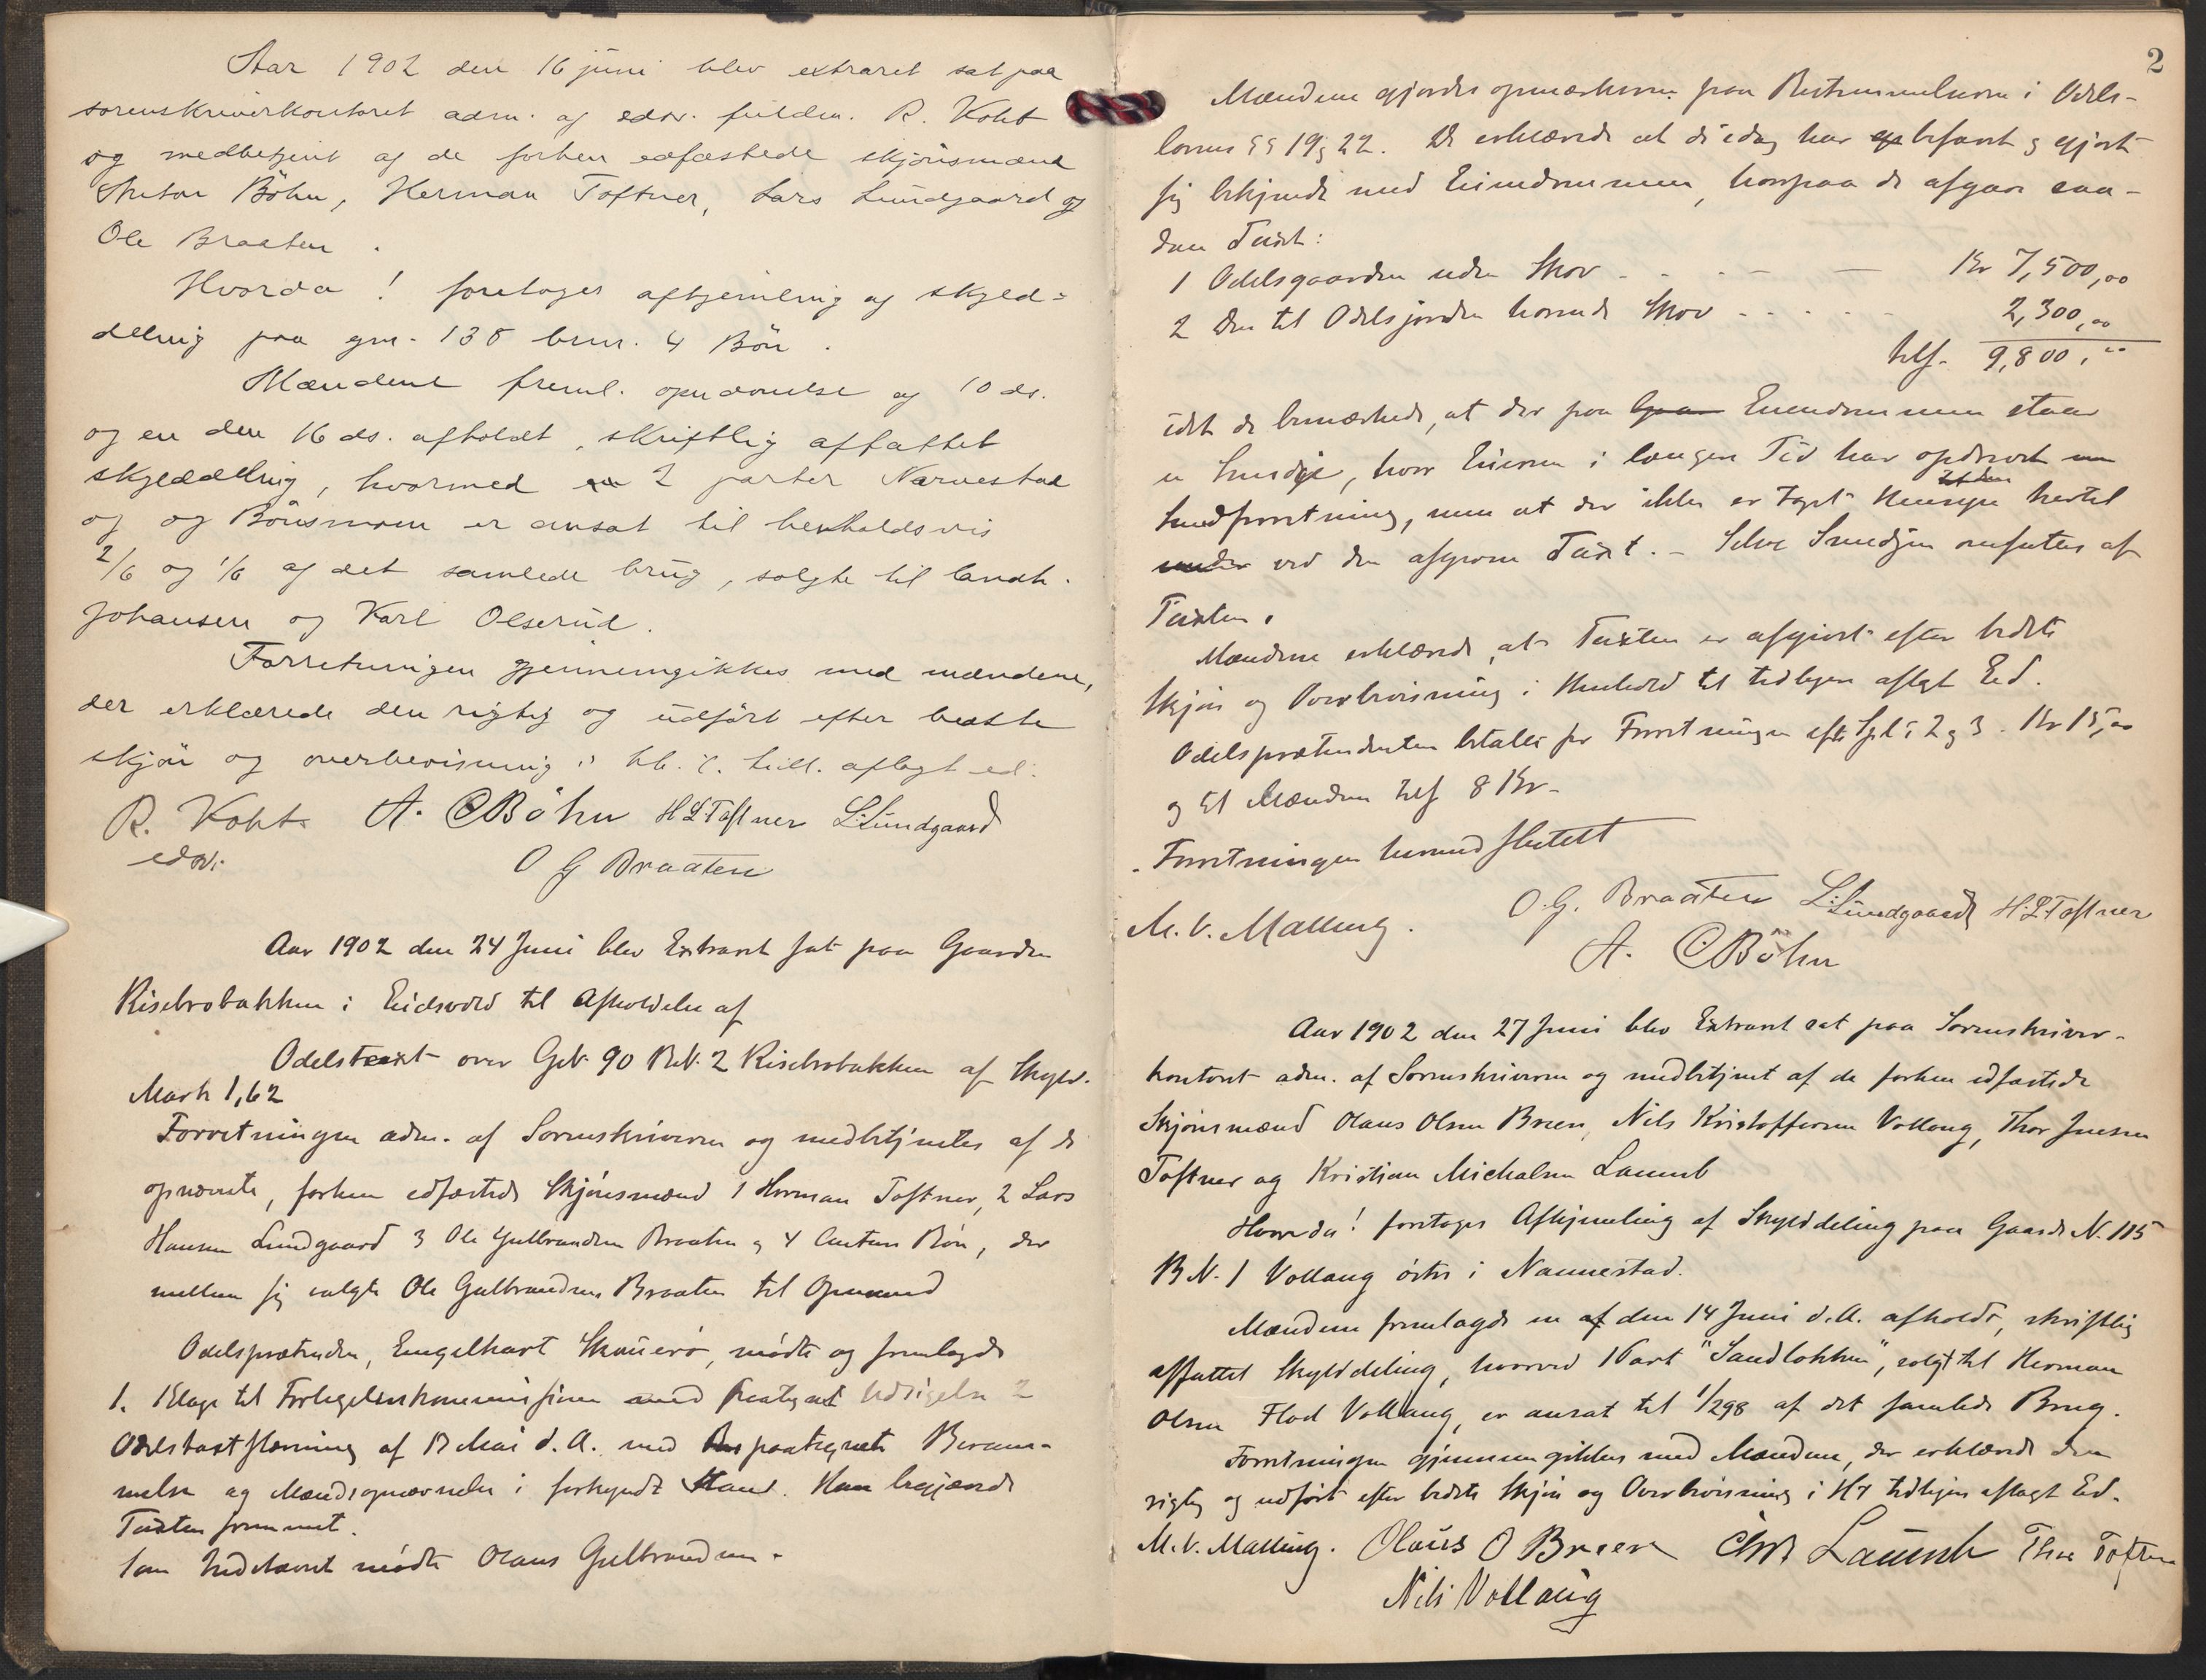 Aar 1902 den 16 juni blev extraret sat paa
sorenskriverkontoret adm. af edsv. fuldm. R. Koht
og medbetjent af de forhen edfæstede skjönsmænd
Anton Böhn, Herman Toftner, Lars Lundgaard og
Ole Braaten.
Hvorda! foretoges afhjemling af skyld-
deling paa gnr. 138 brnr. 4 Bön.
Mændene freml. opnævnelse af 10 ds.
og en den 16 ds. afholdt, skriftlig affattet
skylddeling, hvormed 2 parter Narvestad
og og Bönsmoen er ansat til henholdsvis
2/6 og 1/6 af det samlede brug, solgte til landh.
Johansen og Karl Olserud.
Forretningen gjennemgikkes med mændene,
der erklærede den rigtig og udfört efter bedste
skjön og overbevisning i hh. t. tidl. aflagt ed.
R. Koht A. C Böhn H L Toftner L. Lundgaard
edsv.
O G Braaten
Aar 1902 den 24 Juni blev Extraret sat paa Gaarden
Risebrobakken i Eidsvold til Afholdelse af
Odelstaxt over G.N. 90 B.N. 2 Risebrobakken af Skyld.
Mark 1,62
Forretningen adm. af Sorenskriveren og medbetjentes af de
opnævnte, forhen edfæstede Skjönsmænd 1 Herman Toftner, 2 Lars
Hansen Lundgaard 3 Ole Gulbrandsen Braaten og 4 Anton Bön, der
mellem sig valgte Ole Gulbrandsen Braaten til Opmand
Odelsprætendenten, Engelhart mödte og fremlagde
1. Klage til Forligelseskommissionen med Paategnet Udsigelse 2
Odelstaxt af 13 Mai d. A. med paategnet Beram-
melse og Mændsopnævnelse i forkyndt Stand. Han begjærede
Taxten fremmet.
Som Indstævnt mödte Olaus Gulbrandsen.
2
Mændene gjordes opmærksom paa Bestemmelserne i Odels-
lovens §§ 19 og 22. De erklærede at de idag har befaret og gjort
sig bekjendt med Eiendommen, hvorpaa de afgav saa-
dan Taxt:
1 Odelsgaarden uden Skov - - - - - Kr 7,500,00
2 Den til Odelsjorden hørende Skov - - - - - 2,300,00
tils. 9,800,00
idet de bemærkede, at der paa Eiendommen staar
en Smedje, hvor Eieren i længere Tid har opdrevet en
Smedforretning, men at der ikke er taget Hensyn hertil
ved den afgivne Taxt. - Selve Smedjen omfattes af
Taxten.
Mændene erklærede, at Taxten er afgivet efter bedste
Skjön og Overbevisning i Henhold til tidligere aflagt Ed.
Odelsprætendenten betalte for Forretningen efter Spl. § 2 og 3. Kr 15,00
og til Mændene tils 8 Kr-
Forretningen hermed sluttet
M. V. Malling. O. G. Braaten L. Lundgaard H. L Toftner
A. C Böhn
Aar 1902 den 27 Juni blev Extraret sat paa Sorenskriver-
kontoret adm. af Sorenskriveren og medbetjent af de forhen edfæstede
Skjönsmænd Olaus Olsen Breen, Nils Kristoffersen Vollaug, Thor Jensen
Toftner og Kristian Mickalsen Laumb
Hvorda! foretoges Afhjemling af Skylddeling paa Gaards N. 115
B.N. 1 Vollaug östre i Nannestad.
Mændene fremlagde en af den 14 Juni d. A. afholdt, skriftlig
affattet Skylddeling, hvorved 1 Part "Sandlökken", solgt til Herman
Olsen Flod Vollaug, er ansat til 1/298 af det samlede Brug.
Forretningen gjennemgikkes med Mændene, der erklærede den
rigtig og udfört efter bedste Skjön og Overbevisning i H. T tidligere aflagt Ed.
M. V. Malling. Olaus O Breen Chr. Laumb Thor Toftner
Nils Vollaug